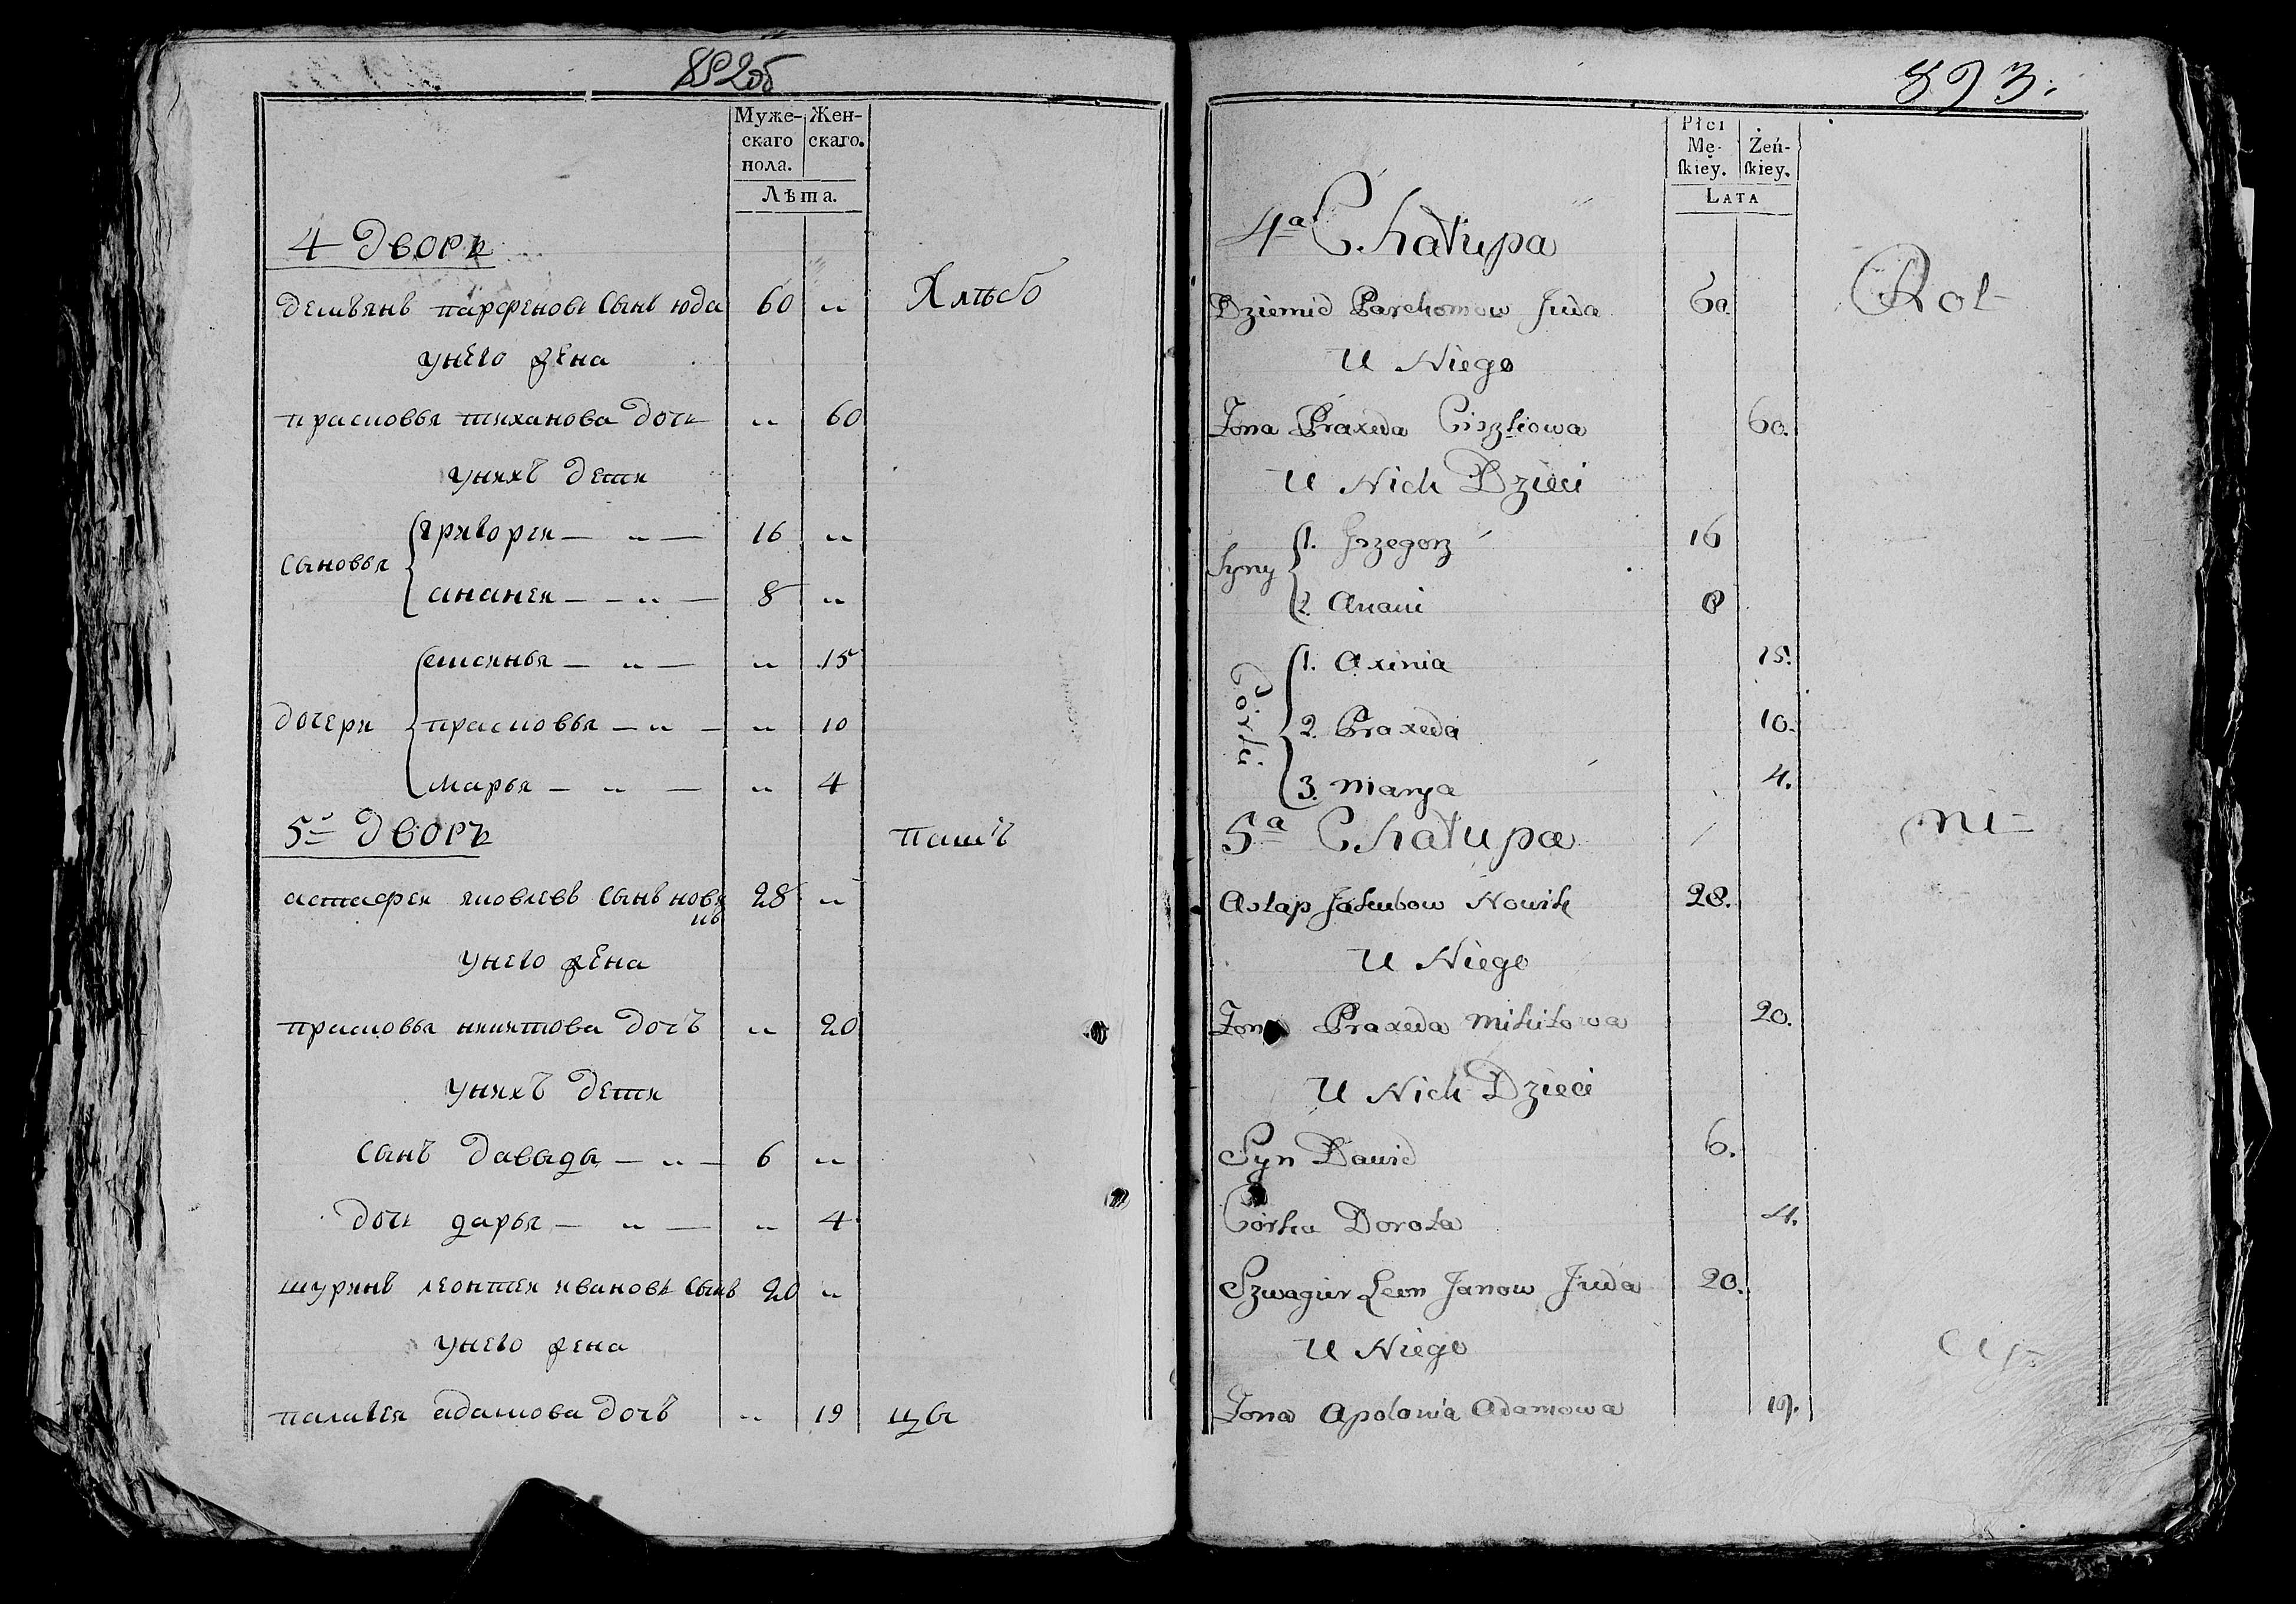 892об
Муже- Жен-
скаго скаго.
пола.
Лѣта.
4 дворъ
демьянъ парфеновъ сынъ юда 60 " Хлѣбо
унего жена
прасковья тиханова дочь " 60
унихъ дети
сыновья григореи — " — 16 "
ананеи — — " — 8 "
дочери {аксинья — " — " 15
прасковья — " — " 10
марья — " — " 4
5й дворъ пашъ
астафеи яковлевъ сынъ нови 28 "
къ
унего жена
прасковья никитова дочъ " 20
унихъ дети
сынъ давыдъ — " — 6 "
дочь дарья — " — " 4
шуринъ леонтеи ивановъ сынъ 20 "
унего жена
палагея адамова дочъ " 19 цы
893.
Płci
Mę- Żeń-
ſkiey. ſkiey.
LATA
4a Chałupa
Dziemid Parchomow Juda 60. Rol-
U Niego
Żona Praxeda Ciszkowa 60.
U Nich Dzieci
Syny {1. Grzegorz 16
2. Anani 8
Córki {1. Axinia 15.
2. Praxeda 10.
3. Marya 4.
5a Chałupa ni-
Astap Jakubow Nowik 28.
U Niego
Żona Praxeda Mikitowa 20.
U Nich Dzieci
Syn Dawid 6.
Córka Dorota 4.
Szwagier Leon Janow Juda 20.
U Niego cy.
Żona Apolonia Adamowa 19.